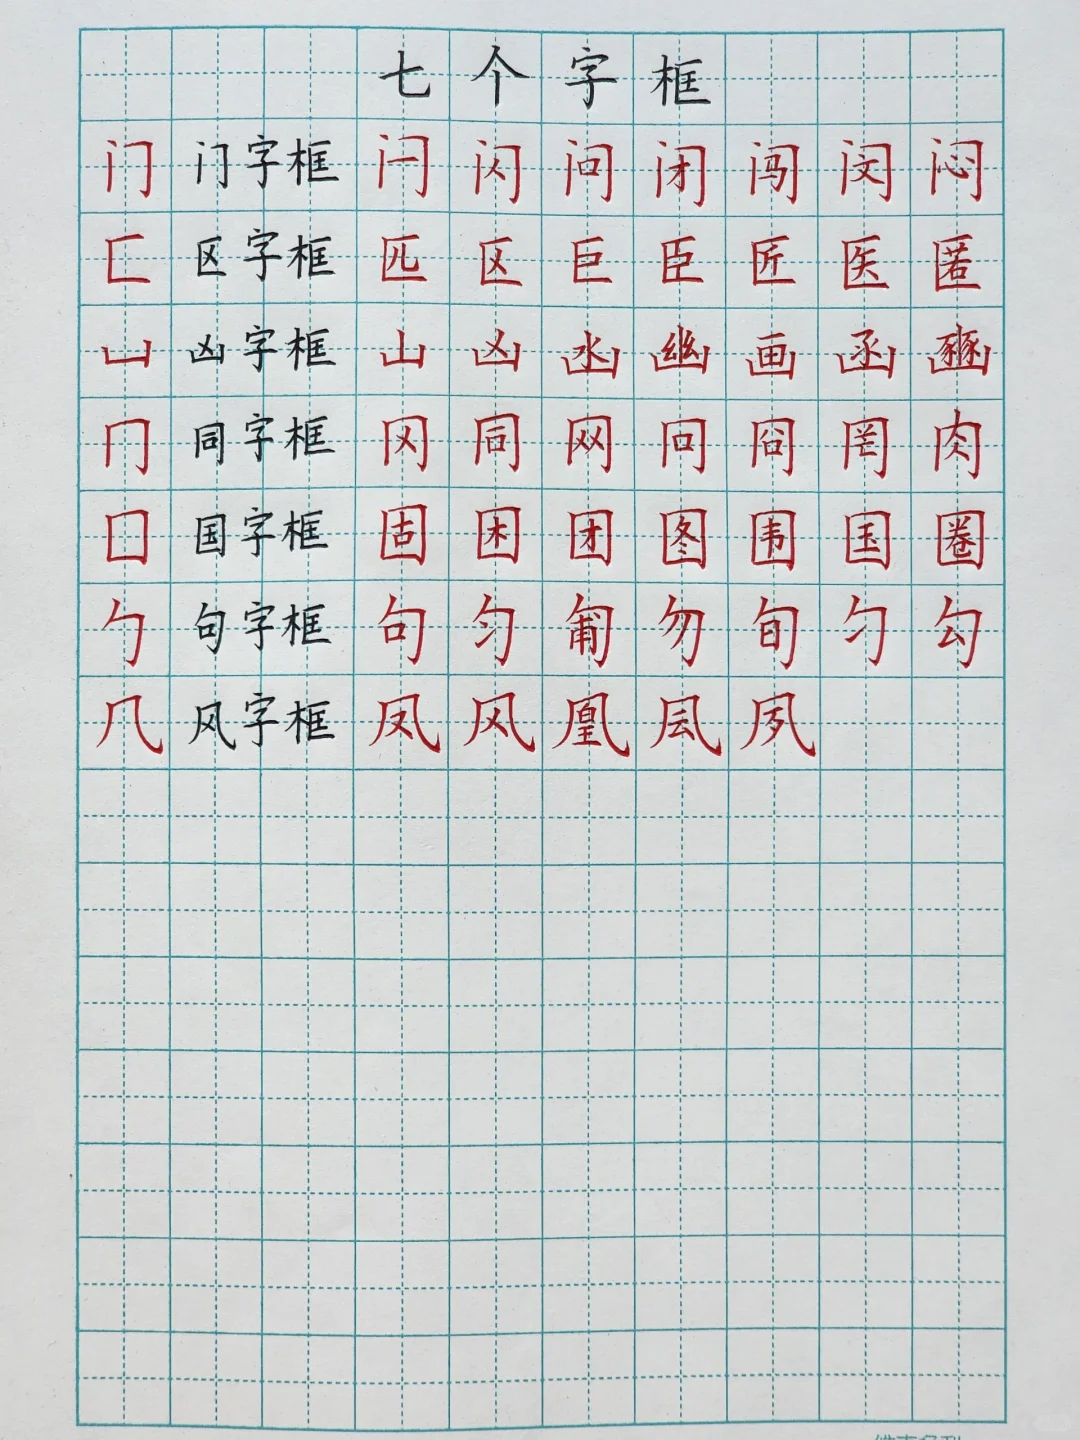 七个字框
门 门字框 闩 闪 问 闭 闯 闵 闷
匚 区字框 匹 区 巨 臣 匠 医 匿
凵 凶字框 山 凶 凼 幽 画 函 豳
冂 同字框 冈 同 网 冋 囧 罔 肉
囗 国字框 固 困 团 图 围 国 圈
勹 句字框 句 匀 匍 勿 旬 勹 勾
几 风字框 凤 风 凰 凨 夙